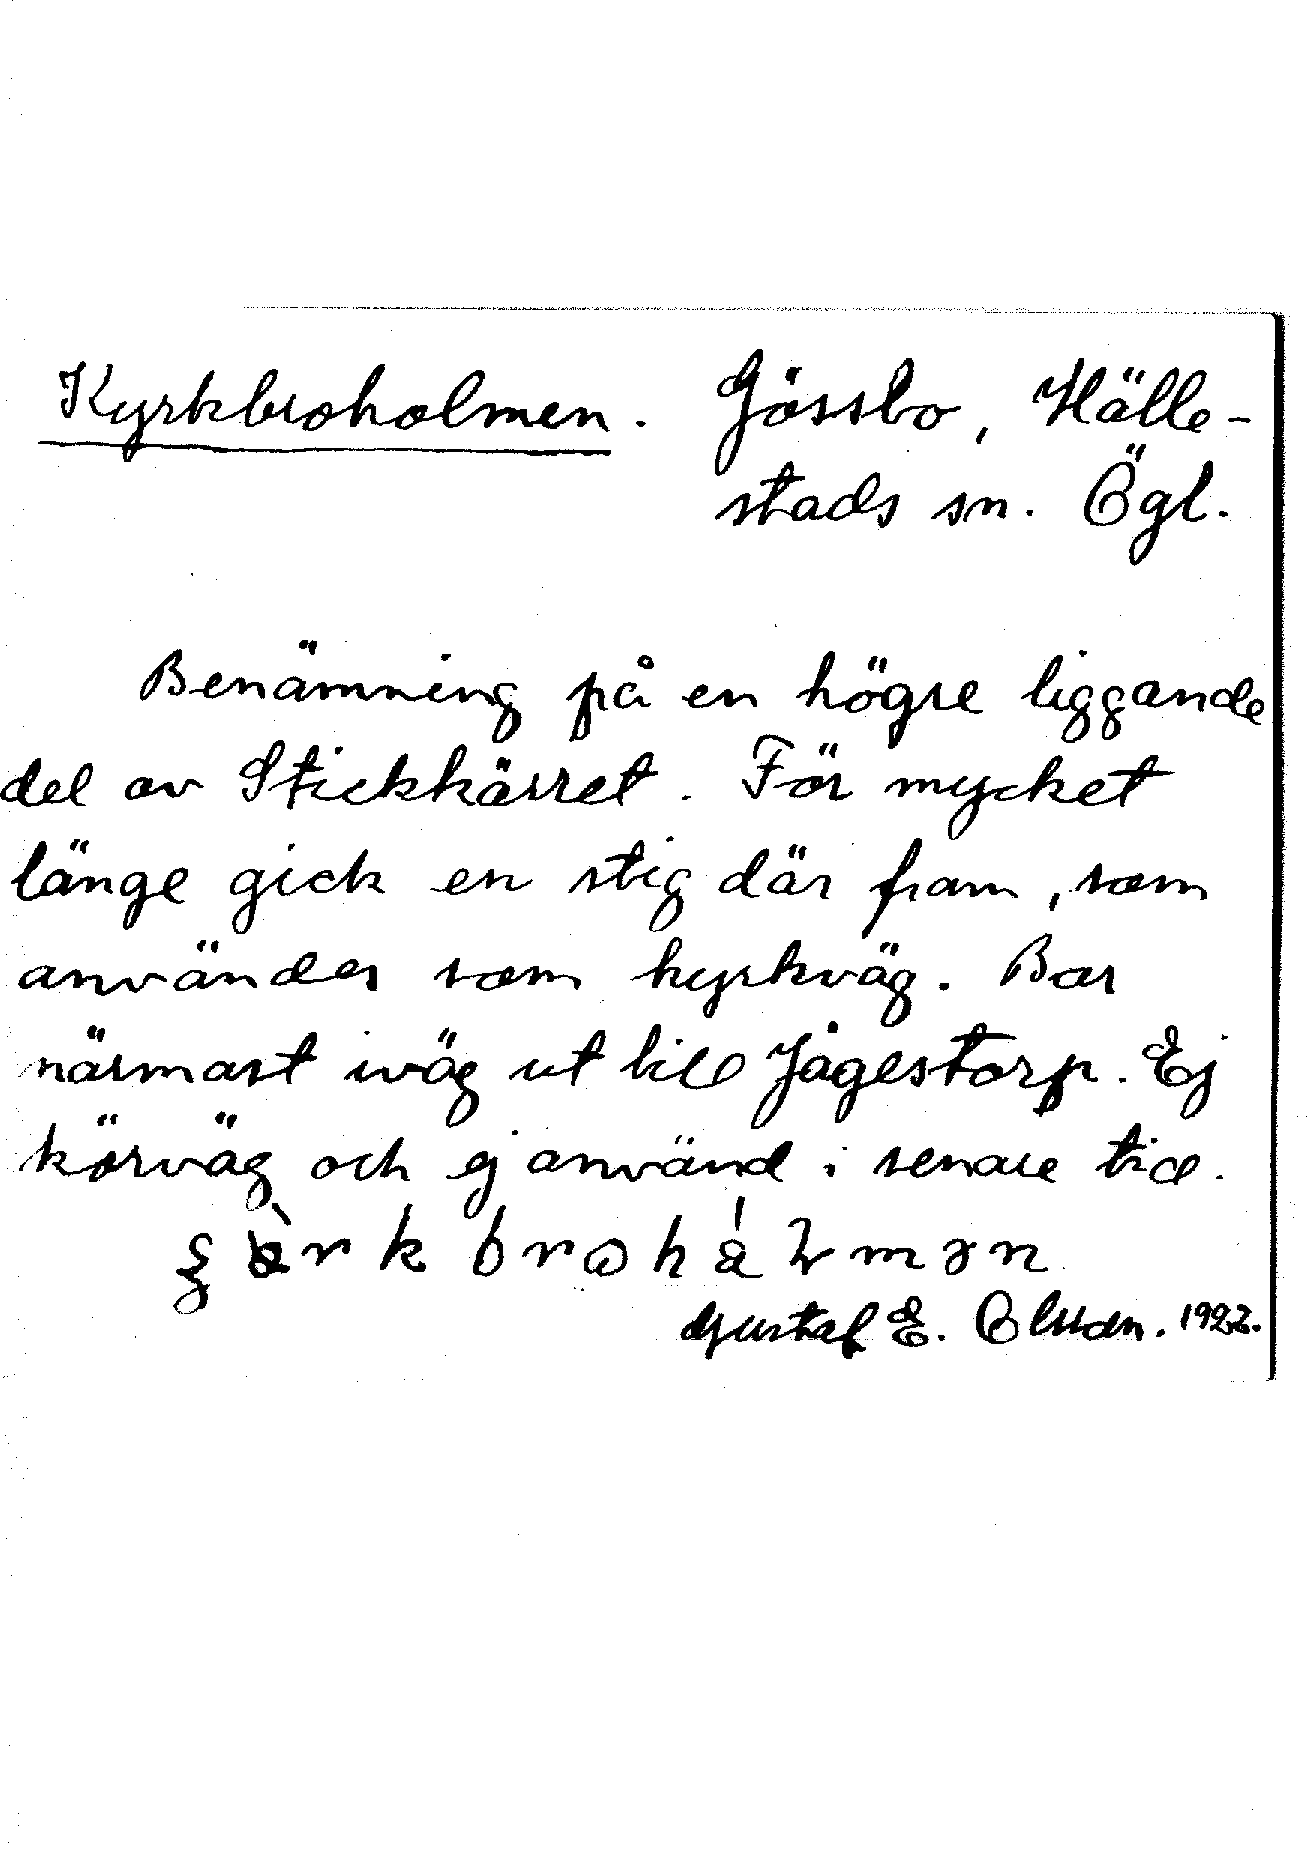 Kyrkbroholmen. Gössbo, Hälle-
stads sn. Ögl.
Benämning på en högre liggande
del av Stickkärret. För mycket
länge gick en stig där fram, som
användes som kyrkväg. Bar
närmast iväg ut till Jägestorp. Ej
körväg och ej använd i senare tid.
Gustaf E. Olsson. 1927.